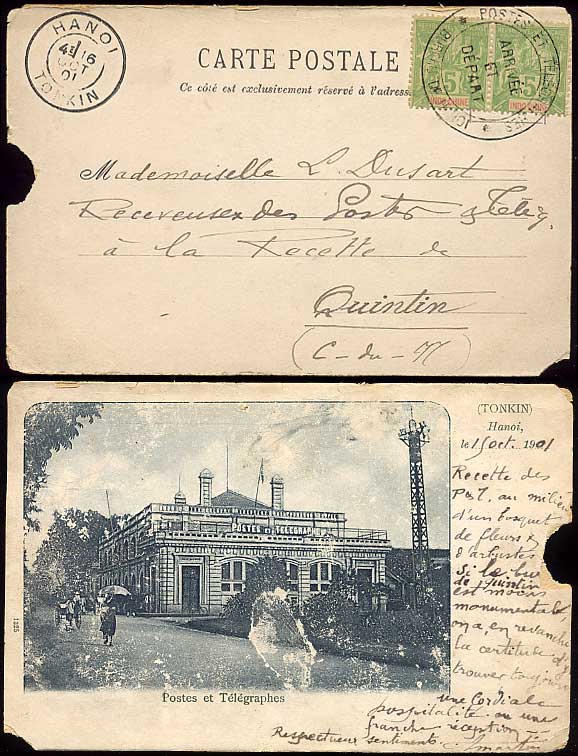 HANOI
4E 16
OCT
01
TONKIN
CARTE POSTALE
Ce côté est exclusivement réservé à l'adresse
POSTES ET
ARRIVÉE
DÉPAR
5 INDO-CHINE 5
Mademoiselle L. Dusart
Receveuse des Postes & Télég.
à la Recette de
Quintin
(C-du-N)
(TONKIN)
Hanoi,
le 15 oct. 1901
Recette des
P&T, au milieu
d'un bosquet
de fleurs &
d'arbustes
Si le bur
de Quintin
est moins
monumental
on a, en revanche
la certitude d'y
trouver toujours
une cordiale
hospitalité ou une
franche réception.
Respectueux sentiments
POSTES ET TÉLÉGRAPHES
1325
Postes et Télégraphes